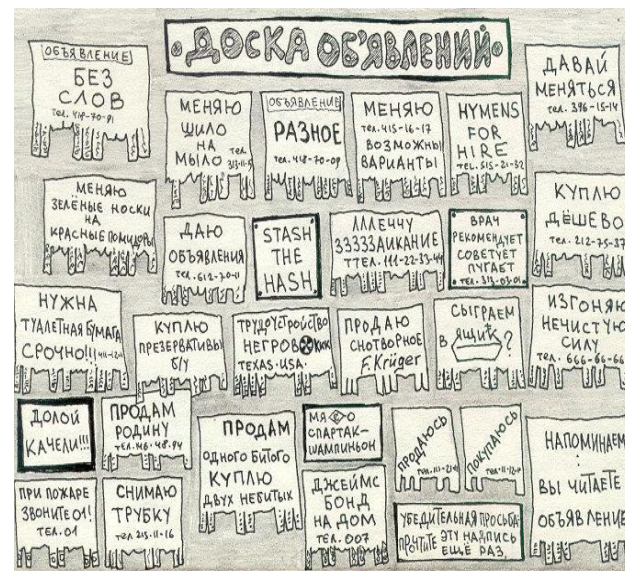 ДОСКА ОБ'ЯВЛЕНИЙ
ОБЪЯВЛЕНИЕ
БЕЗ
СЛОВ
тел. 419-70-91
МЕНЯЮ
ШИЛО
НА
МЫЛО тел.
313-11-5
ОБЪЯВЛЕНИЕ
РАЗНОЕ
тел. 418-70-09
МЕНЯЮ
тел. 415-16-17
ВОЗМОЖНЫ
ВАРИАНТЫ
HYMENS
FOR
HIRE
TEL. 515-21-52
ДАВАЙ
МЕНЯТЬСЯ
тел. 396-15-14
МЕНЯЮ
ЗЕЛЁНЫЕ НОСКИ
НА
КРАСНЫЕ ПОМИДОРЫ
ДАЮ
ОБЪЯВЛЕНИЯ
тел. 612-70-11
STASH
THE
HASH
ЛЛЛЕЧЧУ
ЗЗЗЗЗАИКАНИЕ
ТТЕЛ. 111-22-33-44
ВРАЧ
РЕКОМЕНДУЕТ
СОВЕТУЕТ
ПУГАЕТ
ТЕЛ. 313-03-01
КУПЛЮ
ДЁШЕВО
тел. 212-75-37
НУЖНА
ТУАЛЕТНАЯ БУМАГА
СРОЧНО!!!
КУПЛЮ
ПРЕЗЕРВАТИВЫ
Б/У
ТРУДОУСТРОЙСТВО
НЕГРОВ ККК
TEXAS·USA·
ПРОДАЮ
СНОТВОРНОЕ
F. Krüger
СЫГРАЕМ
В ЯЩИК?
ИЗГОНЯЮ
НЕЧИСТУЮ
СИЛУ
ТЕЛ. 666-66-66
ДОЛОЙ
КАЧЕЛИ!!!
ПРОДАМ
РОДИНУ
ТЕЛ. 146-48-94
ПРОДАМ
ОДНОГО БИТОГО
КУПЛЮ
ДВУХ НЕБИТЫХ
СПАРТАК-
ШАМПИНЬОН
ПРОДАЮСЬ
ПОКУПАЮСЬ
НАПОМИНАЕМ:
ВЫ ЧИТАЕТЕ
ОБЪЯВЛЕНИЕ
ПРИ ПОЖАРЕ
ЗВОНИТЕ 01!
ТЕЛ. 01
СНИМАЮ
ТРУБКУ
ТЕЛ. 215-11-16
ДЖЕЙМС
БОНД
НА ДОМ
ТЕЛ. 007
УБЕДИТЕЛЬНАЯ ПРОСЬБА:
ПРОЧТИТЕ ЭТУ НАДПИСЬ
ЕЩЁ РАЗ.